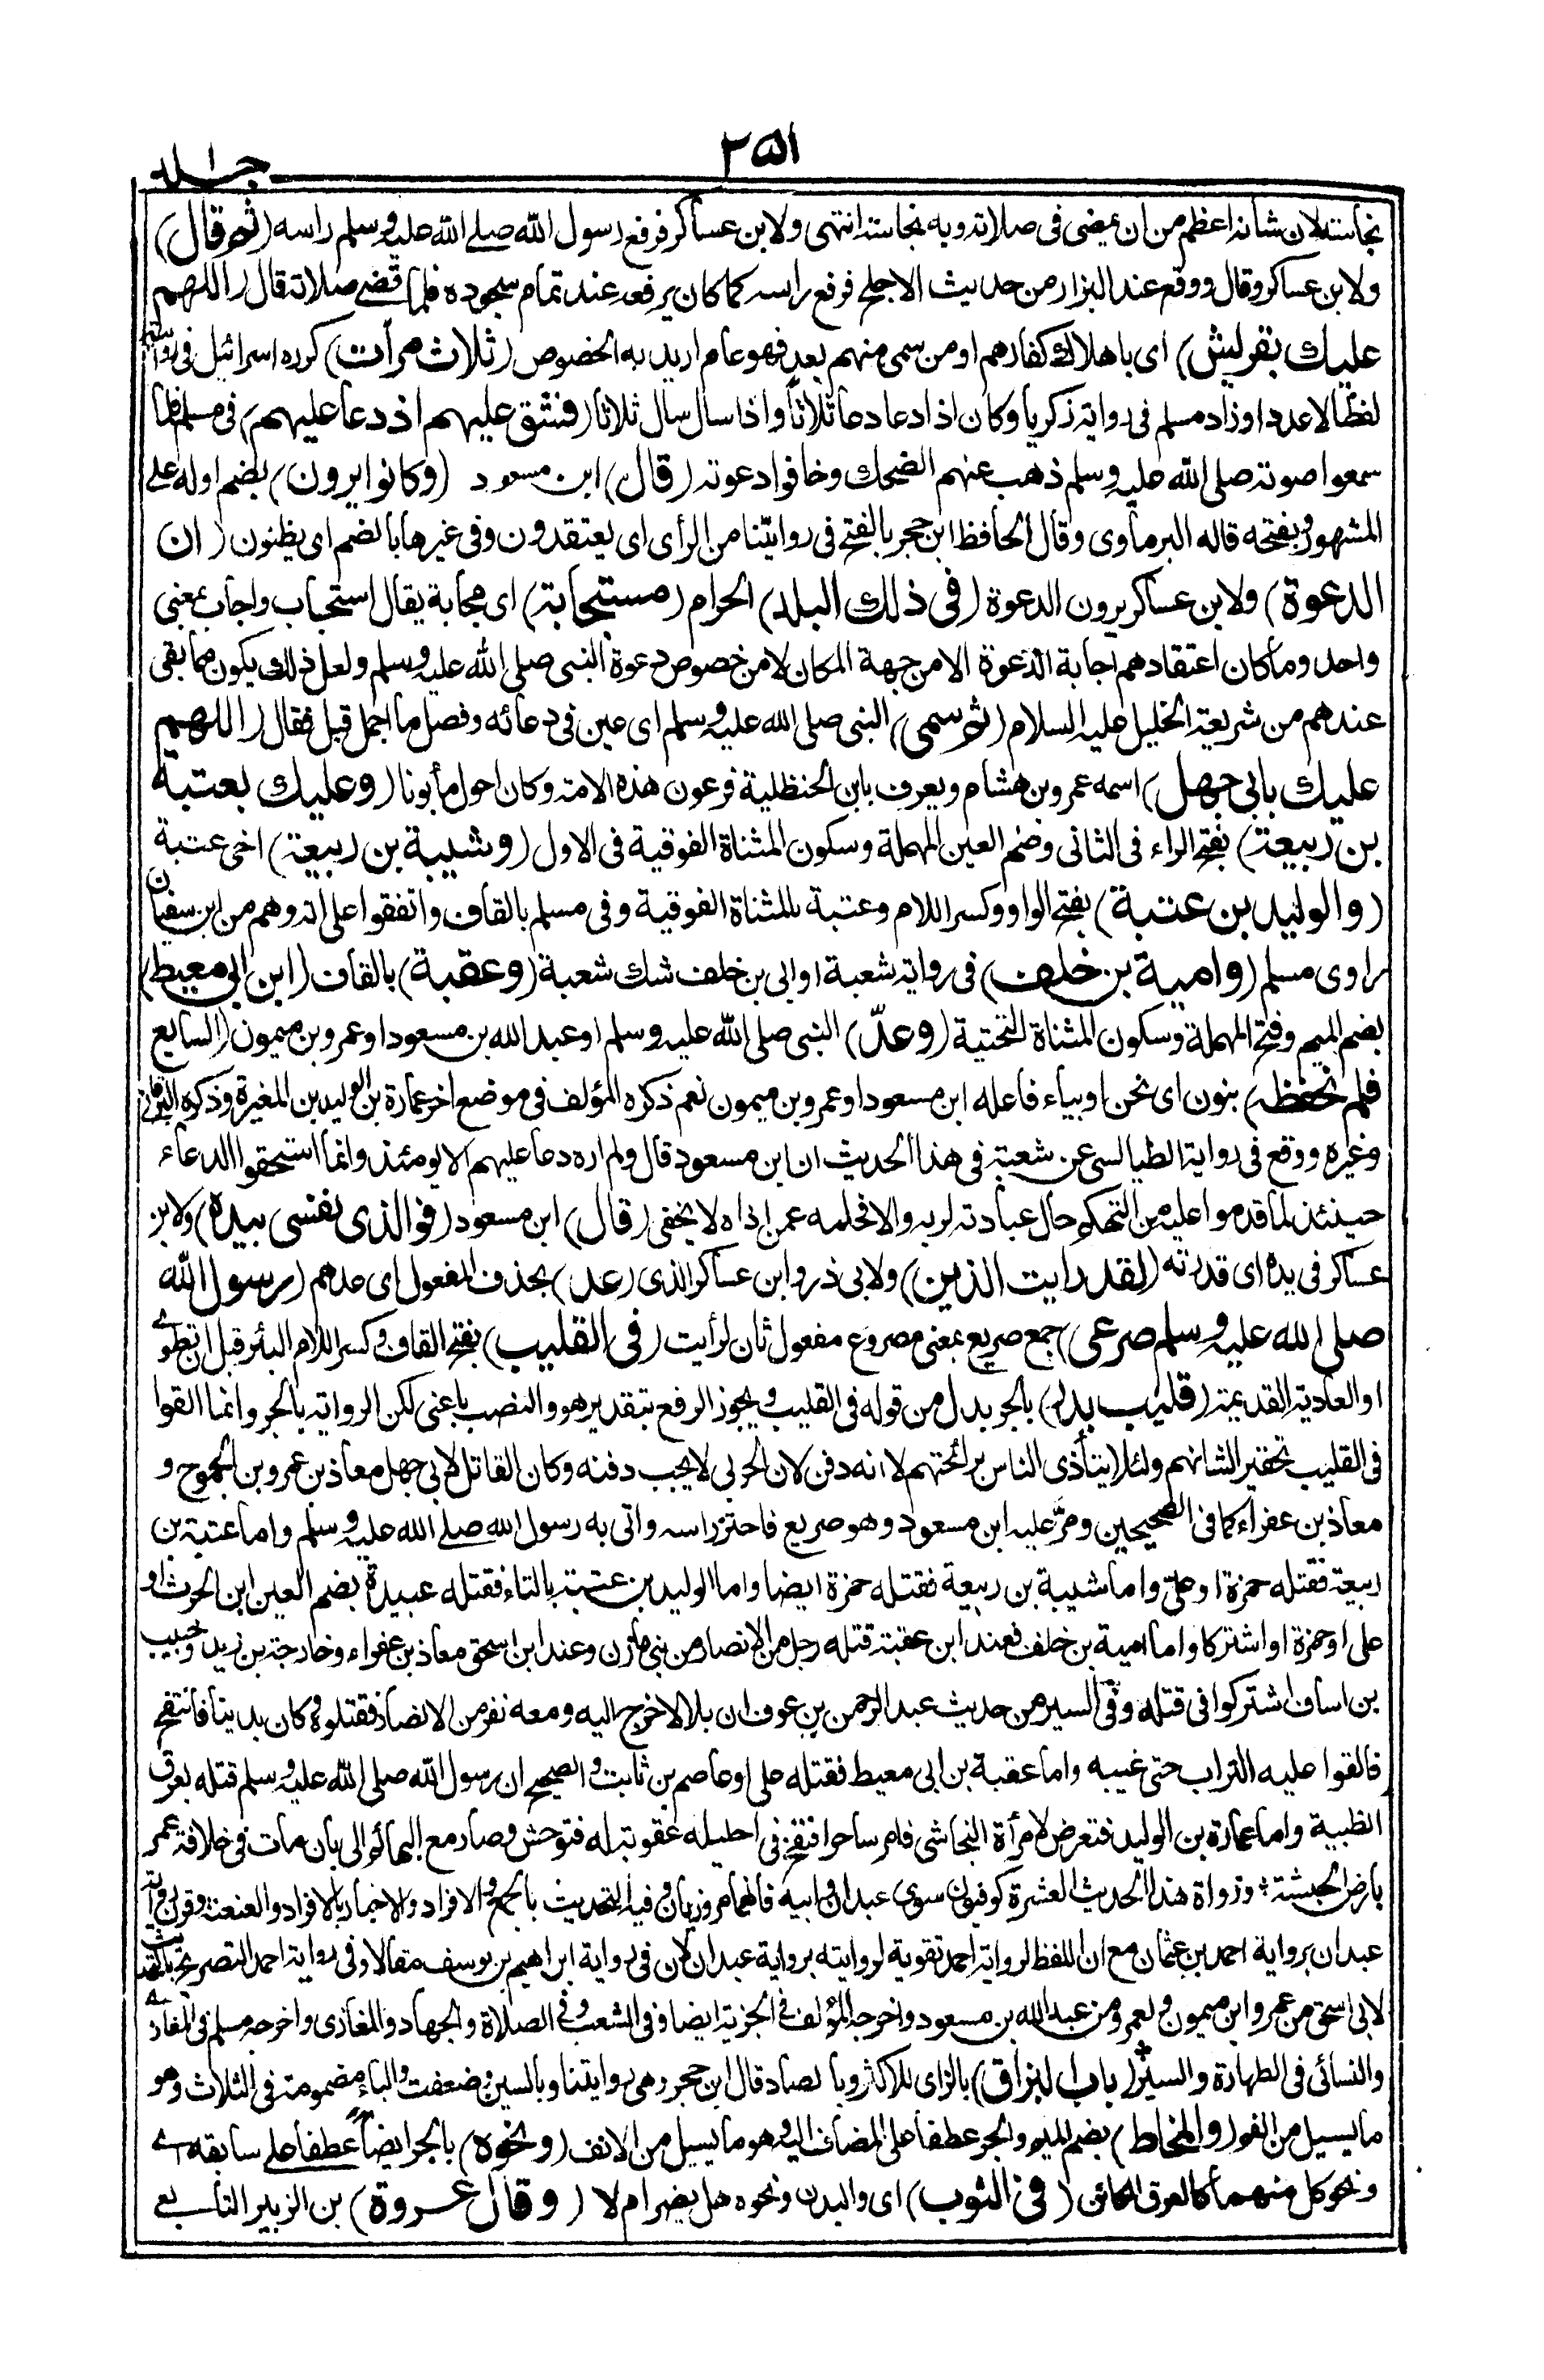 ٢٥١
جلد
نجاسته لان شانه اعظم من ان يمضى فى صلاته وبه نجاسة انتهى ولابن عساكر فرفع رسول الله صلے الله عليه وسلم راسه (ثم قال)
ولابن عساكر وقال ووقع عند البزار من حديث الاجلح فرفع راسه كما كان يرفعه عند تمام سجوده فلما قضے صلاته قال (اللهم
عليك بقريش) اى باهلاك كفارهم او من سمى منهم بعد فهو عام اريد به الخصوص (ثلاث مرات) كرره اسرائيل فى روايته
لفظا لاعددا وزاد مسلم فى رواية زكريا وكان اذا دعا دعا ثلاثا واذا سال سال ثلاثا (فشق عليهم اذ دعا عليهم) فى مسلم فلما
سمعوا صوته صلى الله عليه وسلم ذهب عنهم الضحك وخافوا دعوته (قال) ابن مسعود (وكانوا يرون) بضم اوله على
المشهور وبفتحه قاله البرماوى وقال الحافظ ابن حجر بالفتح فى روايتنا من الرأى اى يعتقدون وفى غيرها بالضم اى يظنون (ان
الدعوة) ولابن عساكر يرون الدعوة (فى ذلك البلد) الحرام (مستجابة) اى مجابة يقال استجاب واجاب بمعنى
واحد وما كان اعتقادهم اجابة الدعوة الا من جهة المكان لا من خصوص دعوة النبى صلى الله عليه وسلم ولعل ذلك يكون مما بقى
عندهم من شريعة الخليل عليه السلام (ثم سمى) النبى صلى الله عليه وسلم اى عين فى دعائه وفصل ما اجمل قبل فقال (اللهم
عليك بابى جهل) اسمه عمرو بن هشام ويعرف بابن الحنظلية فرعون هذه الامة وكان احول مأبونا (وعليك بعتبة
بن ربيعة) بفتح الراء فى الثانى وضم العين المهملة وسكون المثناة الفوقية فى الاول (وشيبة بن ربيعة) اخى عتبة
(والوليد بن عتبة) بفتح الواو وكسر اللام وعتبة بالمثناة الفوقية وفى مسلم بالقاف واتفقوا على انه وهم من ابن سفيان
راوى مسلم (وامية بن خلف) فى رواية شعبة او ابى بن خلف شك شعبة (وعقبة) بالقاف (ابن ابى معيط)
بضم الميم وفتح المهملة وسكون المثناة التحتية (وعدّ) النبى صلى الله عليه وسلم او عبد الله بن مسعود او عمرو بن ميمون (السابع
فلم نحفظه) بنون اى نحن او بياء فاعله ابن مسعود او عمرو بن ميمون نعم ذكره المؤلف فى موضع اخر عمارة بن الوليد بن المغيرة وذكره البرقانى
وغيره ووقع فى رواية الطيالسى عن شعبة فى هذا الحديث ان ابن مسعود قال ولم اره دعا عليهم الا يومئذ وانما استحقوا الدعاء
حينئذ لما قدموا عليه من التهكم حال عبادته لربه والا فحلمه عمن اذاه لا يخفى (قال) ابن مسعود (فوالذى نفسى بيده) ولابن
عساكر فى يده اى قدرته (لقد رايت الذين) ولابى ذر وابن عساكر الذى (عد) بحذف المفعول اى عدهم (رسول الله
صلى الله عليه وسلم صرعى) جمع صريع بمعنى مصروع مفعول ثان لرأيت (فى القليب) بفتح القاف وكسر اللام البئر قبل ان تطوى
او العادية القديمة (قليب بدر) بالجر بدل من قوله فى القليب ويجوز الرفع بتقدير هو والنصب باعنى لكن الرواية بالجر وانما القوا
فى القليب تحقيرا لشانهم ولئلا يتأذى الناس برائحتهم لا انه دفن لان الحربى لا يجب دفنه وكان القاتل لابى جهل معاذ بن عمرو بن الجموح و
معاذ بن عفراء كما فى الصحيحين ومرّ عليه ابن مسعود وهو صريع فاحتز راسه واتى به رسول الله صلے الله عليه وسلم واما عتبة بن
ربيعة فقتله حمزة او علىّ واما شيبة بن ربيعة فقتله حمزة ايضا واما الوليد بن عتبة بالتاء فقتله عبيدة بضم العين ابن الحرث او
على او حمزة او اشتركا واما امية بن خلف فعند ابن عقبة قتله رجل من الانصار من بنى مازن وعند ابن اسحق معاذ بن عفراء وخارجة بن زيد وخبيب
بن اساف اشتركوا فى قتله وفى السير من حديث عبد الرحمن بن عوف ان بلالا خرج اليه ومعه نفر من الانصار فقتلوه وكان بدينا فانتفخ
فالقوا عليه التراب حتى غيبه واما عقبة بن ابى معيط فقتله على او عاصم بن ثابت والصحيح ان رسول الله صلى الله عليه وسلم قتله بعرق
الظبية واما عمارة بن الوليد فتعرض لامرأة النجاشى فامر ساحرا فنفخ فى احليله عقوبة له فتوحش وصار مع البهائم الى ان مات فى خلافة عمر
بارض الحبشة ؛ ورواة هذا الحديث العشرة كوفيون سوى عبدان وابيه فانهما مروزيان وفيه التحديث بالجمع والافراد والاخبار بالافراد والعنعنة وقرن رواية
عبدان برواية احمد بن عثمان مع ان اللفظ لرواية احمد تقوية لروايته برواية عبدان لان فى رواية ابراهيم بن يوسف مقالا وفى رواية احمد التصريح بالتحديث
لابى اسحق من عمرو ابن ميمون ولعمرو من عبد الله بن مسعود واخرجه المؤلف فى الجزية ايضا وفى الشعب وفى الصلاة والجهاد والمغازى واخرجه مسلم فى المغازى
والنسائى فى الطهارة والسير (باب البزاق) بالزاى للاكثر وبالصاد قال ابن حجر وهى روايتنا وبالسين وضعفت والباء مضمومة فى الثلاث وهو
ما يسيل من الفم (والمخاط) بضم الميم والجر عطفا على المضاف اليه وهو ما يسيل من الانف (ونحوه) بالجر ايضا عطفا على سابقه اى
ونحو كل منهما كالعرق الكائن (فى الثوب) اى والبدن ونحوه هل يضر ام لا (وقال عروة) بن الزبير التابعى